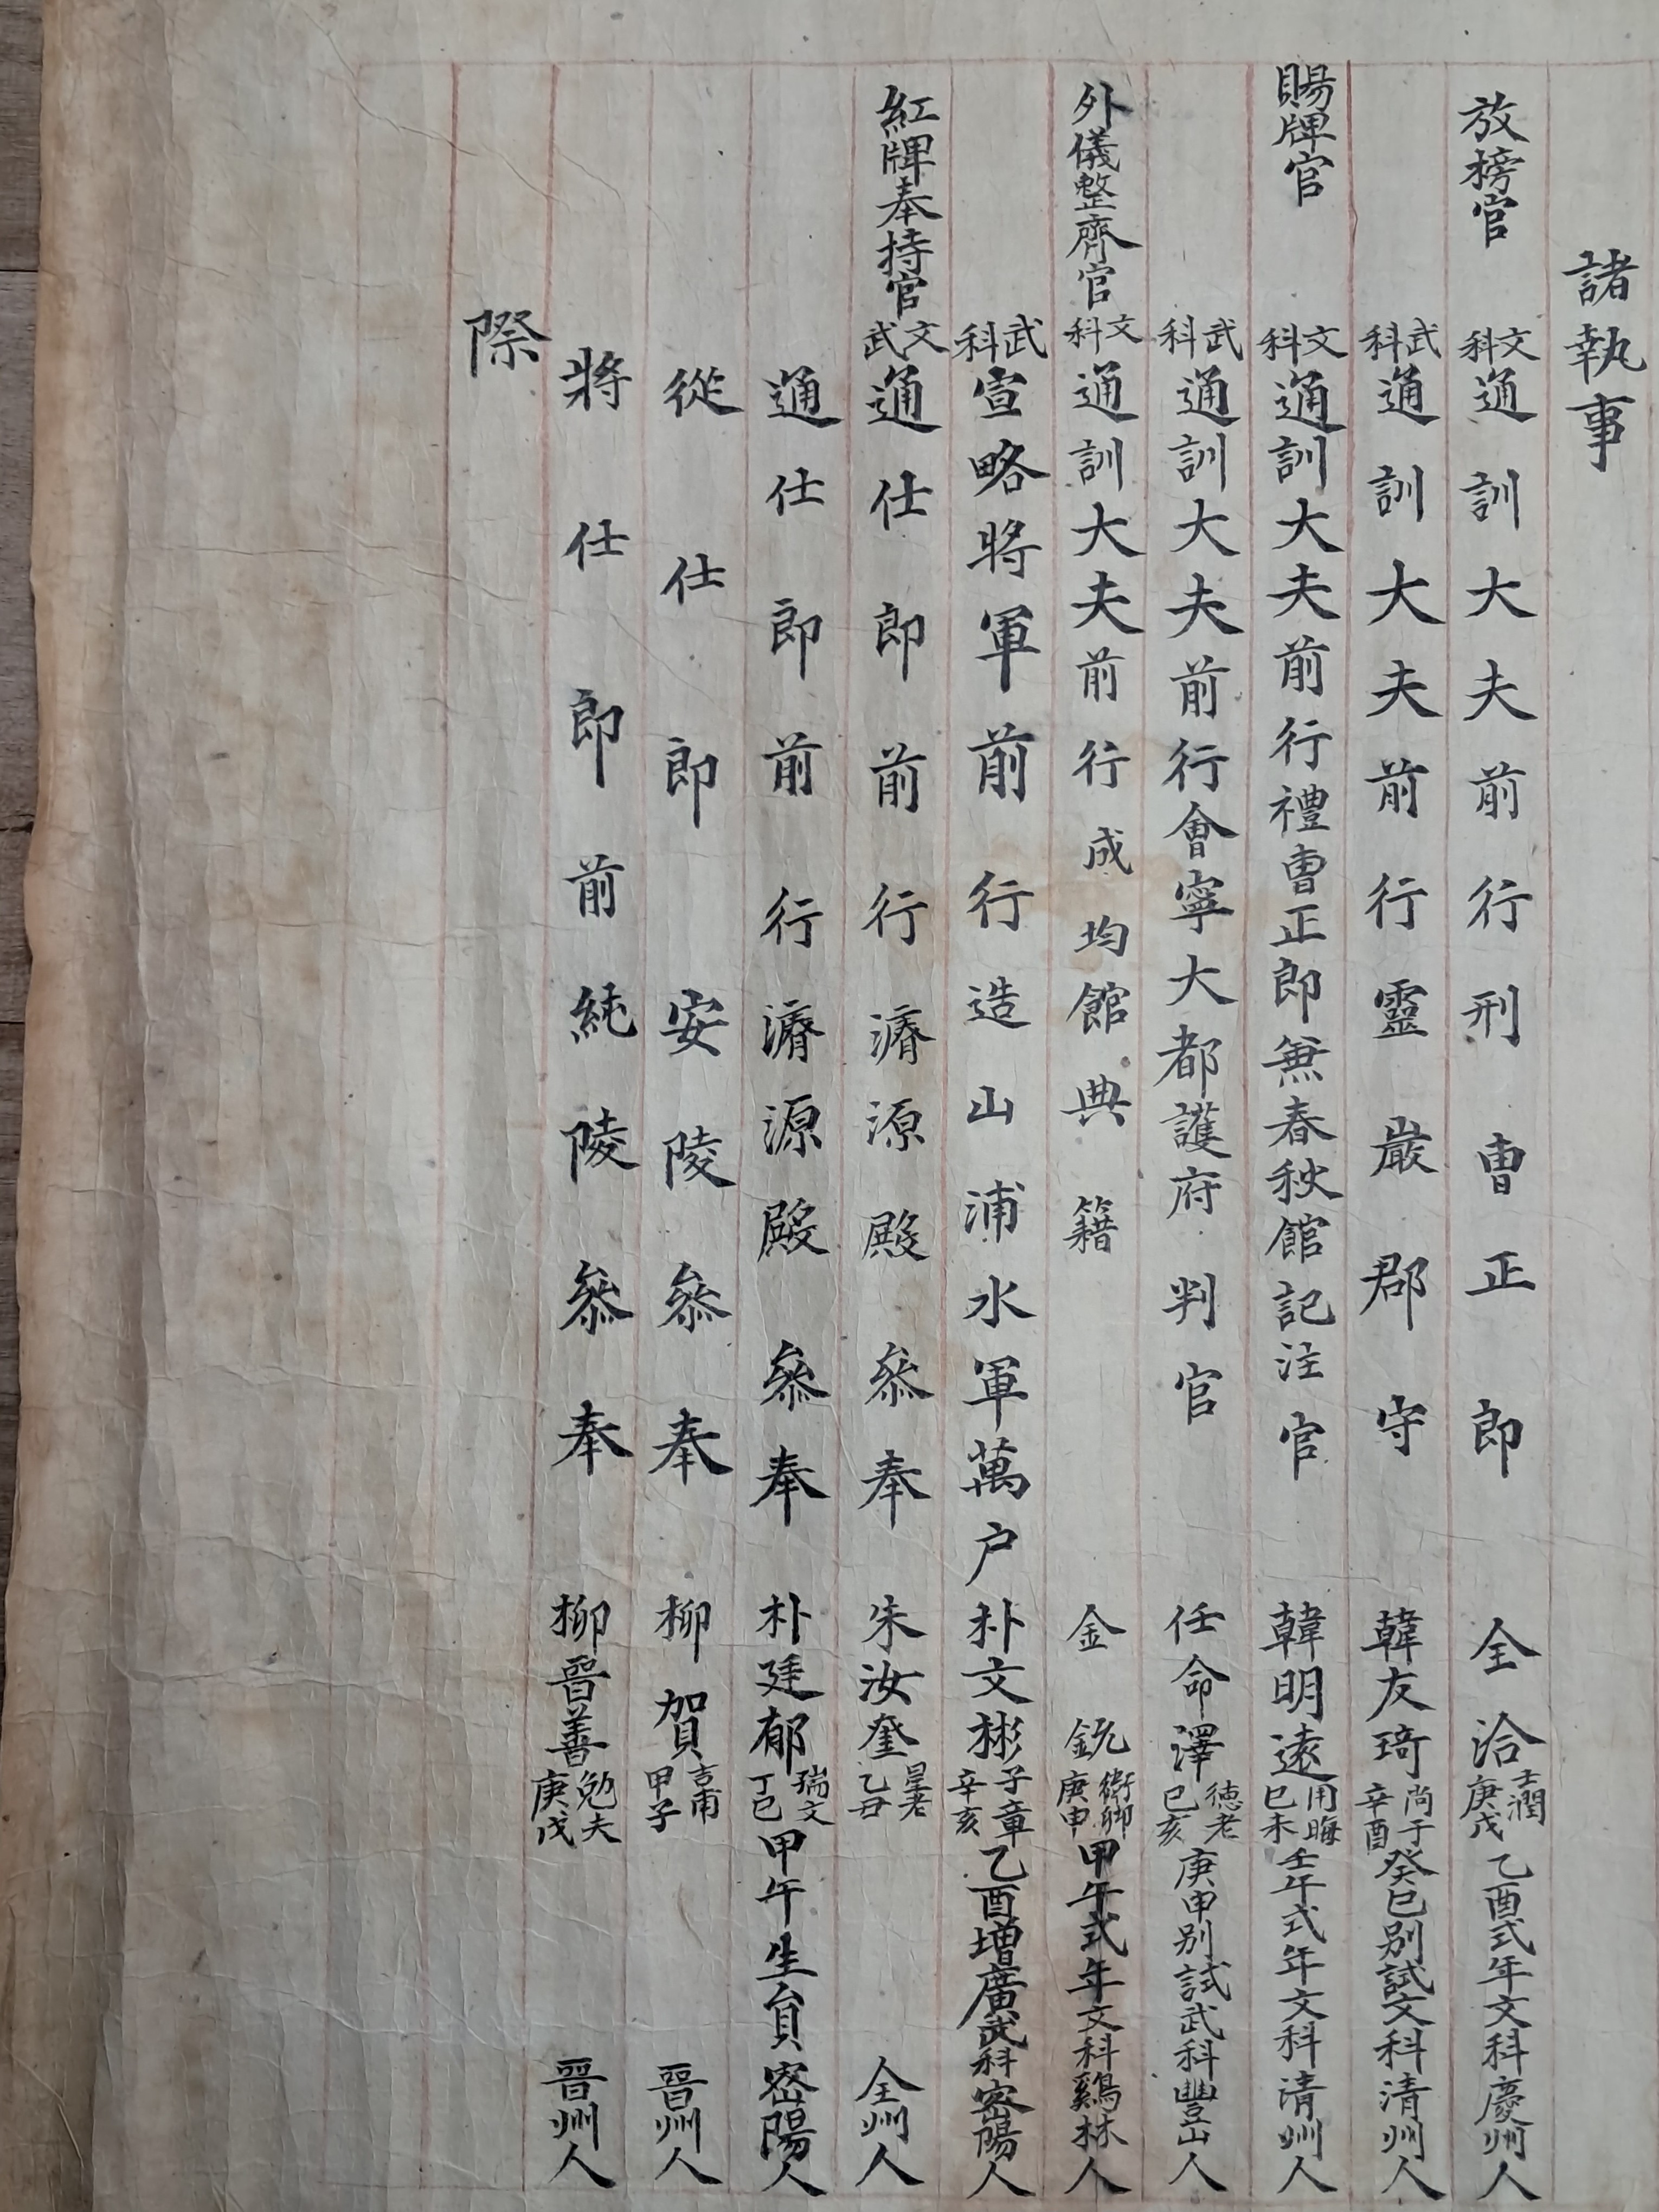 諸執事
放榜官 文科 通訓大夫前行刑曹正郎 全洽 士潤 庚戌 乙酉式年文科慶州人
武科 通訓大夫前行靈巖郡守 韓友琦 尚于 辛酉 癸巳別試文科清州人
賜牌官 文科 通訓大夫前行禮曹正郎兼春秋館記注官 韓明遠 用晦 己未 壬午式年文科清州人
武科 通訓大夫前行會寧大都護府判官 任命澤 德老 己亥 庚申別試武科豐山人
外儀整齊官 文科 通訓大夫前行成均館典籍 金銃 衝卿 庚申 甲午式年文科鷄林人
武科 宣略將軍前行造山浦水軍萬户 朴文彬 子章 辛亥 乙酉增廣武科密陽人
紅牌奉持官 文武 通仕郎前行濬源殿參奉 朱汝奎 星老 乙丑 全州人
通仕郎前行濬源殿參奉 朴廷郁 瑞文 丁巳 甲午生員密陽人
從仕郎安陵參奉 柳賀 吉甫 甲子 晋州人
將仕郎前純陵參奉 柳晋善 勉夫 庚戌 晋州人
際